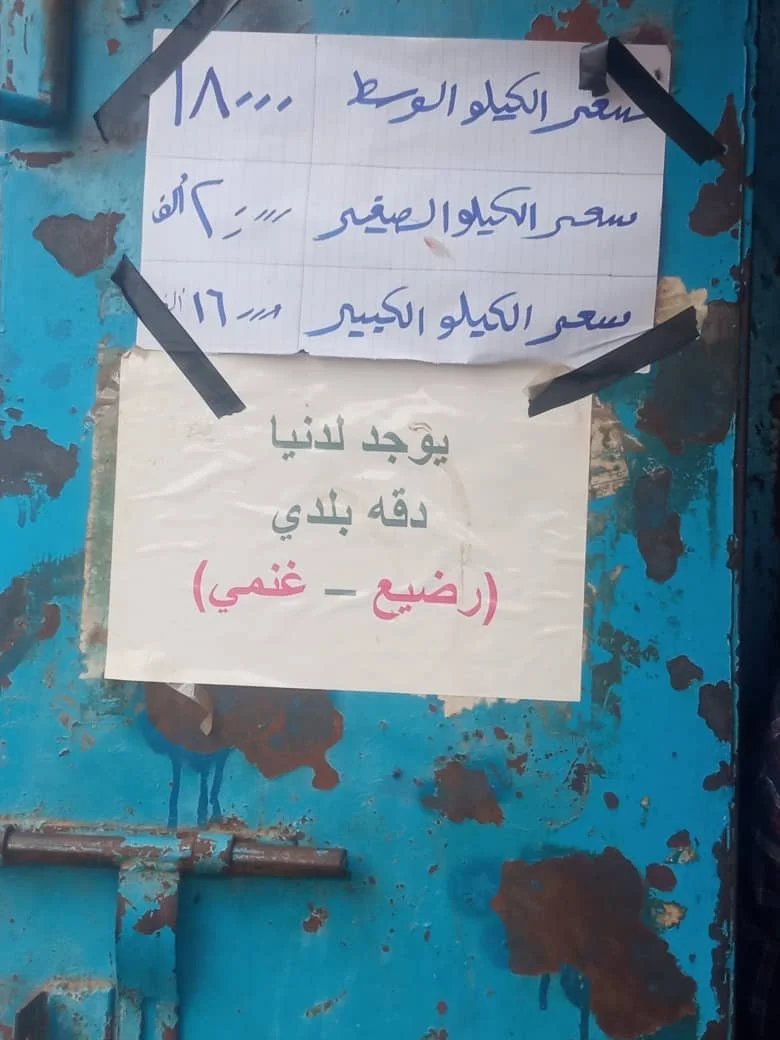 سعر الكيلو الوسط ١٨٠٠٠
سعر الكيلو الصغير ٢٠٠٠٠ ألف
سعر الكيلو الكبير ١٦٠٠٠
يوجد لدنيا
دقه بلدي
(رضيع – غنمي)